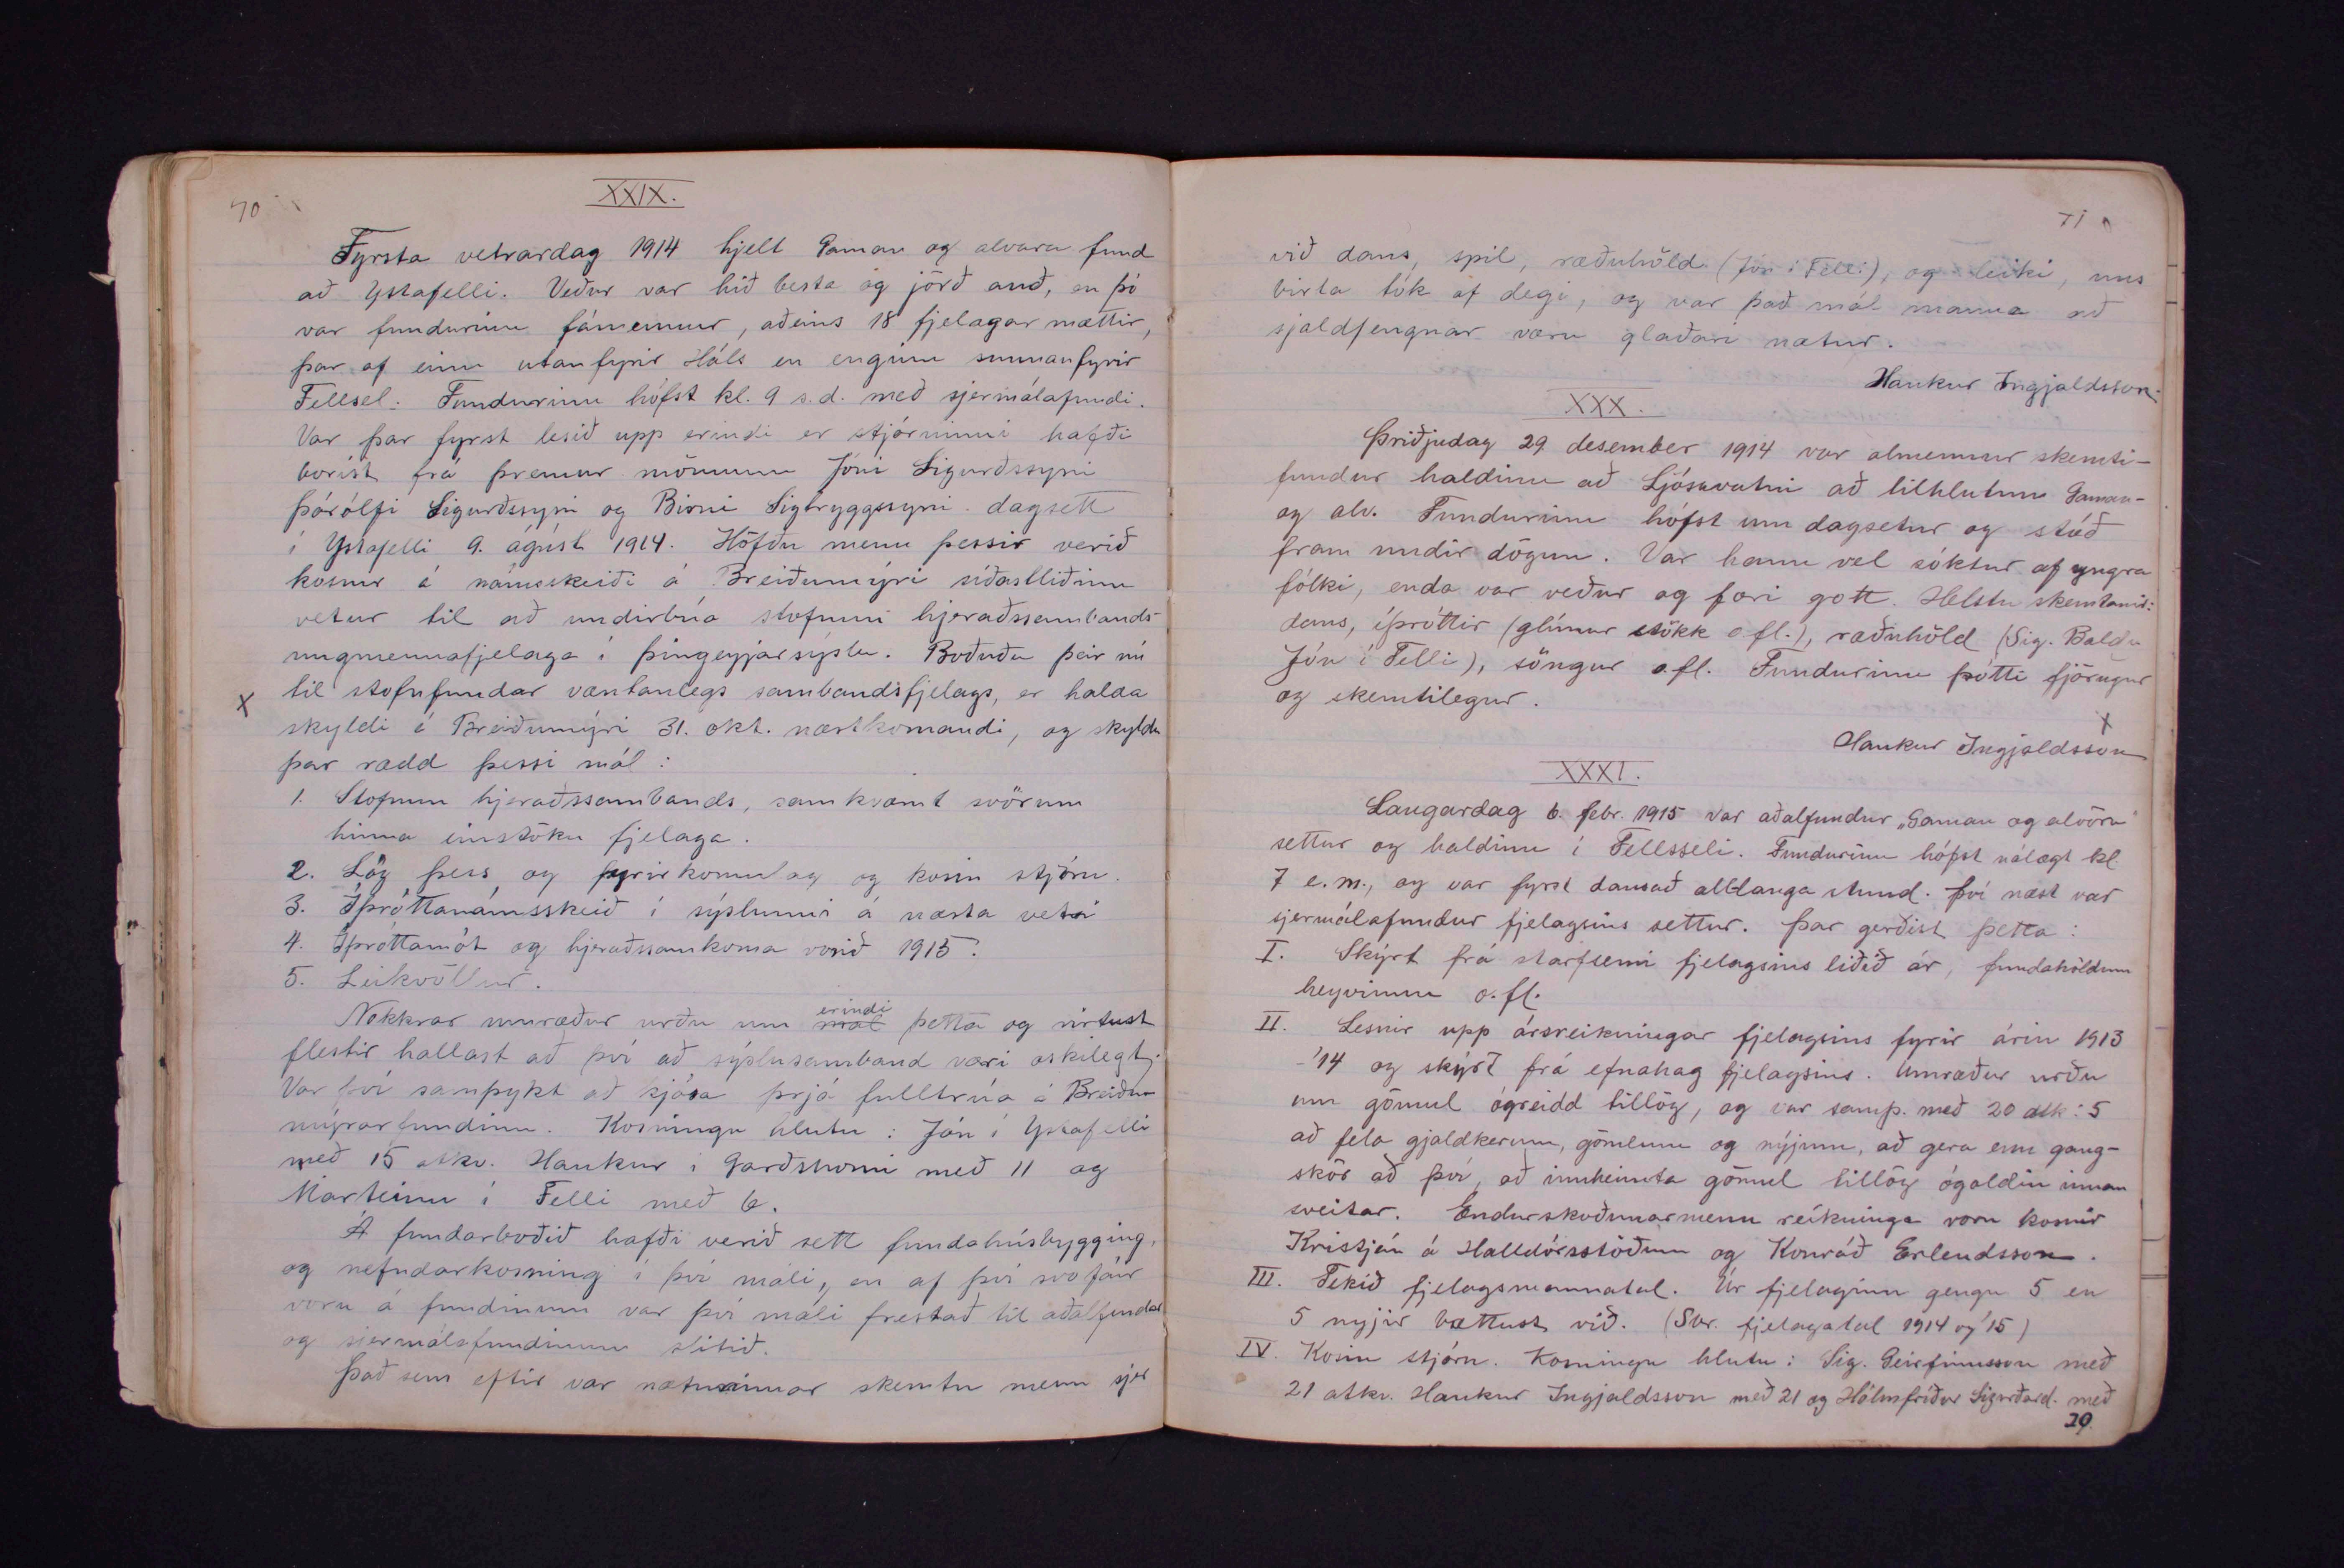 70
XXIX.
Fyrsta vetrardag 1914 hjelt Gaman og alvara fund
að Ystafelli. Veður var hið besta og jörð auð, en þó
var fundurinn fámennur, aðeins 18 fjelagar mættir,
þar af einn utanfyrir Háls en enginn sunnanfyrir
Fellsel. Fundurinn hófst kl. 9 s.d. með sjermálafundi.
Var þar fyrst lesið upp erindi er stjórninni hafði
borist frá þremur mönnum Jóni Sigurðssyni
Þórólfi Sigurðssyni og Birni Sigtryggssyni dagsett
í Ystafelli 9. ágúst 1914. Höfðu menn þessir verið
kosnir á námsskeiði á Breiðumýri síðastliðinn
vetur til að undirbúa stofnun hjeraðssambands
ungmennafjelaga í Þingeyjarsýslu. Boðuðu þeir nú
x til stofnfundar væntanlegs sambandsfjelags, er halda
skyldi á Breiðumýri 31. okt. næstkomandi, og skyldu
þar rædd þessi mál:
1. Stofnun hjeraðssambands, samkvæmt svörum
hinna einstöku fjelaga.
2. Lög þess og fyrirkomulag og kosin stjórn.
3. Íþróttanámsskeið í sýslunni á næsta vetri
4. Íþróttamót og hjeraðssamkoma vorið 1915.
5. Leikvöllur.
erindi
Nokkrar umræður urðu um mál þetta og virtust
flestir hallast að því að sýslusamband væri æskilegt.
Var því samþykt að kjósa þrjá fulltrúa á Breiðu-
mýrarfundinn. Kosningu hlutu: Jón í Ystafelli
með 15 atkv. Haukur í Garðshorni með 11 og
Marteinn í Felli með 6.
Á fundarboðið hafði verið sett fundahúsbygging,
og nefndarkosning í því máli, en af því svo fáir
voru á fundinum var því máli frestað til aðalfundar
og sjermálafundinum slitið.
Það sem eftir var næturinnar skemtu menn sjer
71
við dans, spil, ræðuhöld (Jón í Felli), og leiki, uns
birta tók af degi, og var það mál manna að
sjaldfengnar væru glaðari nætur.
Haukur Ingjaldsson.
XXX.
Þriðjudag 29. desember 1914 var almennur skemti-
fundur haldinn að Ljósavatni að tilhlutun Gaman-
og alv. Fundurinn hófst um dagsetur og stóð
fram undir dögun. Var hann vel sóktur af yngra
fólki, enda var veður og færi gott. Helstu skemtanir:
dans, íþróttir (glímur stökk o.fl.), ræðuhöld (Sig. Baldv
Jón í Felli), söngur o.fl. Fundurinn þótti fjörugur
og skemtilegur.
x
Haukur Ingjaldsson
XXXI.
Laugardag 6. febr. 1915 var aðalfundur „Gaman og alvöru"
settur og haldinn í Fellsseli. Fundurinn hófst nálægt kl.
7 e.m., og var fyrst dansað alllanga stund. Því næst var
sjermálafundur fjelagsins settur. Þar gerðist þetta:
I. Skýrt frá starfsemi fjelagsins liðið ár, fundahöldum
heyvinnu o.fl.
II. Lesnir upp ársreikningar fjelagsins fyrir árin 1913
-'14 og skýrt frá efnahag fjelagsins. Umræður urðu
um gömul ógreidd tillög, og var samþ. með 20 atk: 5
að fela gjaldkerum, gömlum og nýjum, að gera enn gang-
skör að því, að innheimta gömul tillög ógoldin innan
sveitar. Endurskoðunarmenn reikninga voru kosnir
Kristján á Halldórsstöðum og Konráð Erlendsson.
III. Tekið fjelagsmannatal. Úr fjelaginu gengu 5 en
5 nyjir bættust við. (Sbr. fjelagatal 1914 og '15)
IV. Kosin stjórn. Kosningu hlutu: Sig. Geirfinnsson með
21 atkv. Haukur Ingjaldsson með 21 og Hólmfríður Sigurðard. með
20.